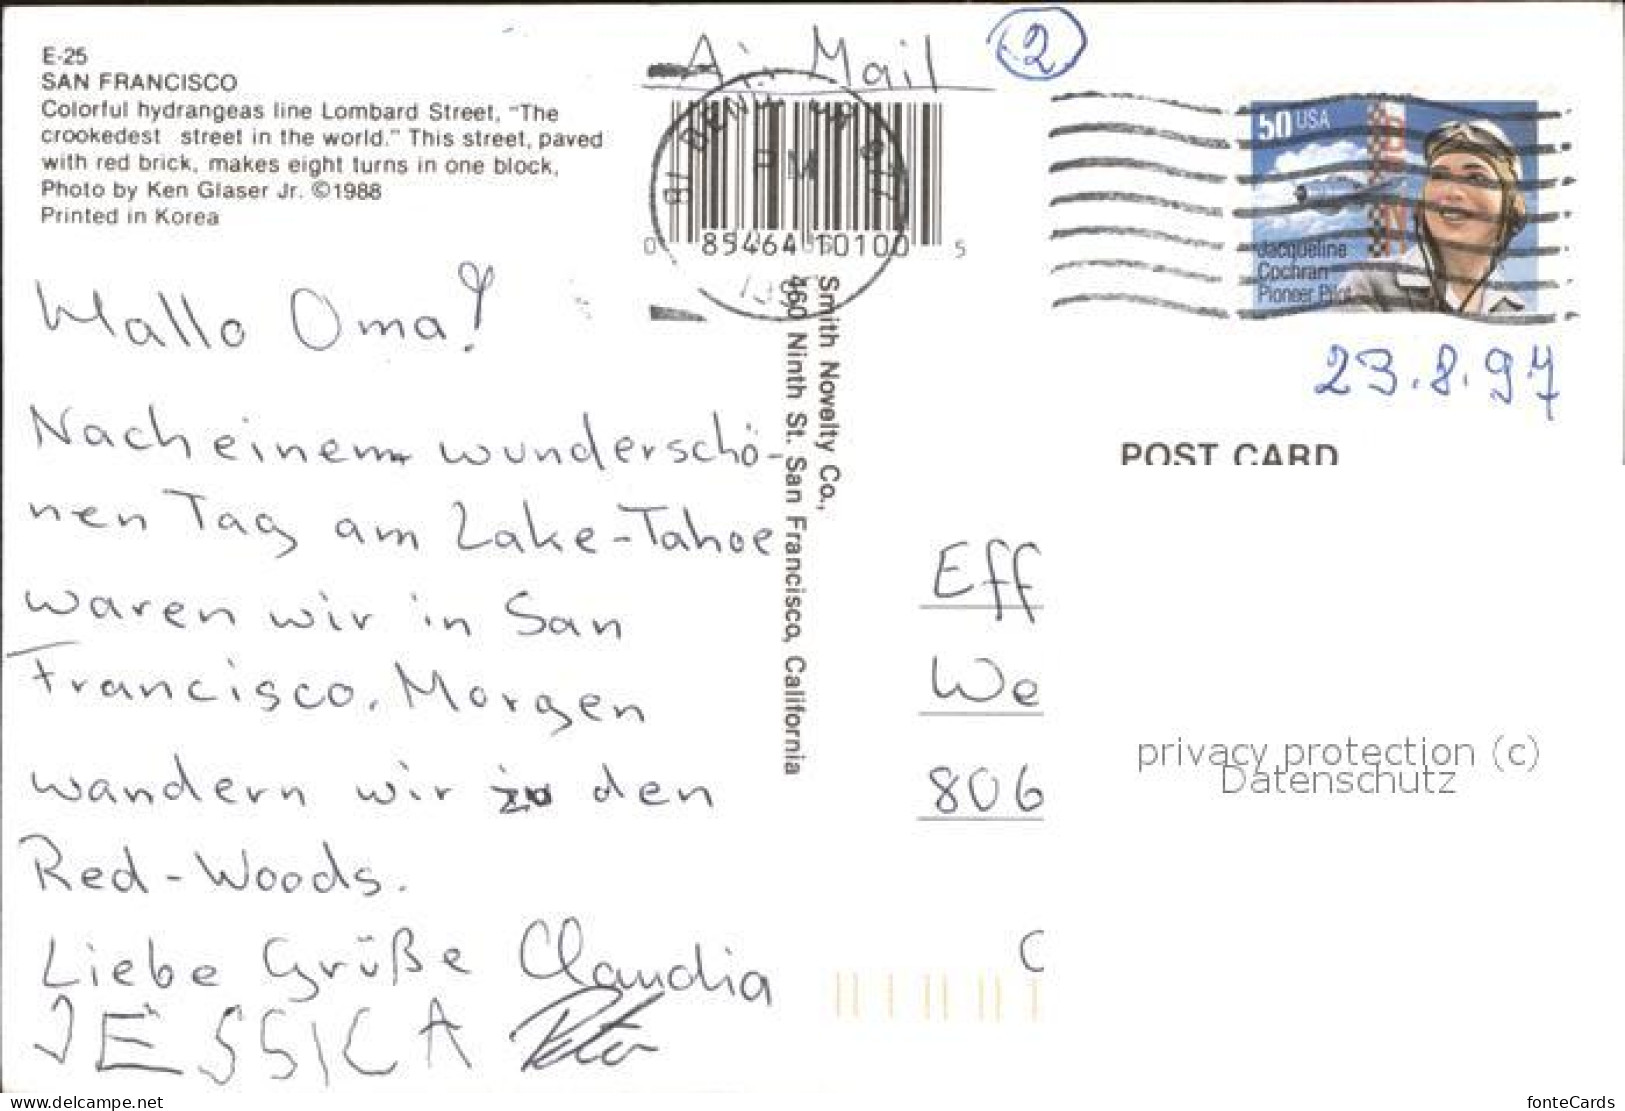 E-25
SAN FRANCISCO
Colorful hydrangeas line Lombard Street, "The
crookedest street in the world." This street, paved
with red brick, makes eight turns in one block,
Photo by Ken Glaser Jr. ©1988
Printed in Korea
Air Mail
2
PM
0 89464 10100 5
50 USA
Jacqueline
Cochran
Pioneer Pilot
23.8.97
POST CARD
Smith Novelty Co.,
460 Ninth St. San Francisco, California
Hallo Oma!
Nach einem wunderschö-
nen Tag am Lake-Tahoe
waren wir in San
Francisco. Morgen
wandern wir zu den
Red-Woods.
Liebe Grüße Claudia
JESSICA Peter
Eff
We
806
C
privacy protection (c)
Datenschutz
www.delcampe.net
fonteCards